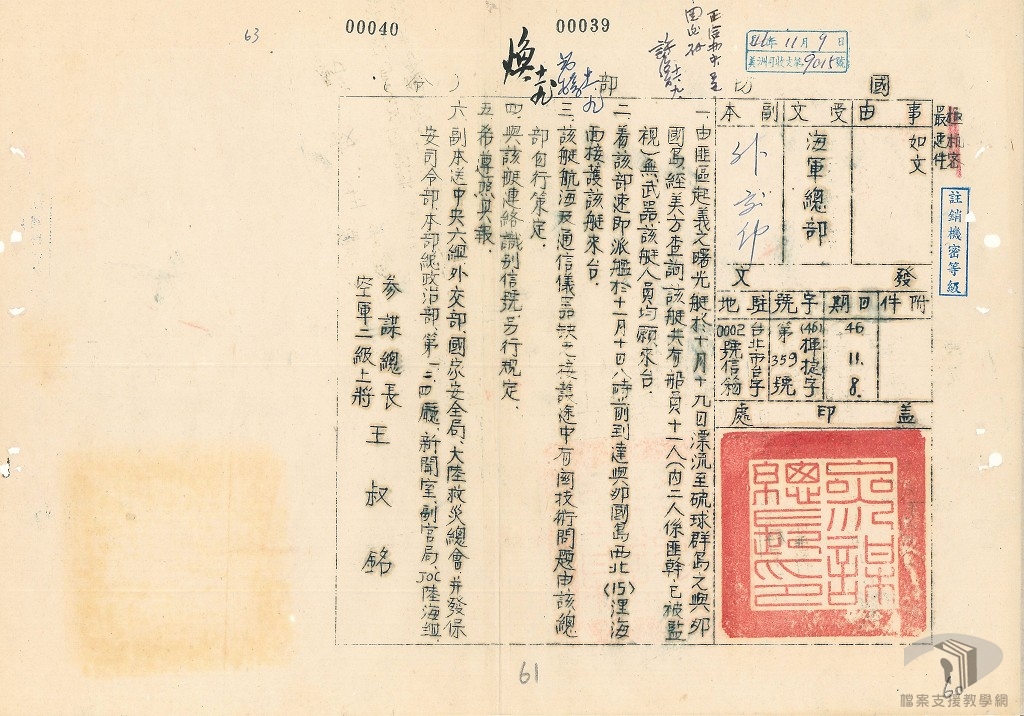 00040
00039
63
46年11月9日
美洲司收文第9015號
國防部(令)
極機密
最速件
註銷機密等級
事由
如文
受文
海軍總部
副本
外交部
發文
附件
日期
46.11.8.
字號
(46)揮捷字
第359號
駐地
台北市台字
0002號信箱
蓋印處
參謀總長印
一、由匪區起義之曙光艇於十月十九日漂流至硫球群島之與那
國島經美方查詢該艇共有船員十一人(內二人係匪幹,已被監
視)無武器該艇人員均願來台.
二、着該部速即派艦於十一月十日八時前到達與那國島西北(15)浬海
面接護該艇來台.
三、該艇航海及通信儀器缺乏接護途中有關技術問題由該總
部自行策定.
四、與該艇連絡識別信號另行規定.
五、希尊照具報.
六、副本送中央六組.外交部.國家安全局.大陸救災總會.并發保
安司令部.本部總政治部.第一.二.四廳.新聞室.副官局.JOC陸海組.
參謀總長
空軍二級上將 王叔銘
61
60
檔案支援教學網